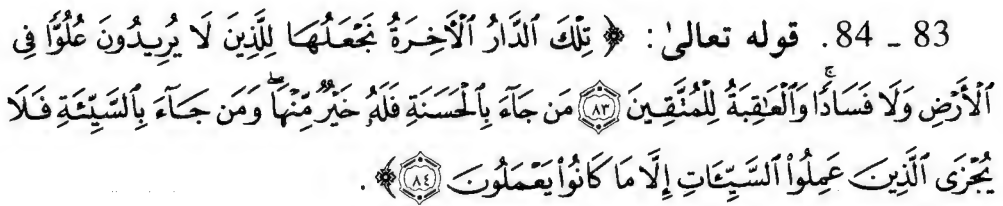 83 ـ 84. قوله تعالىٰ: ﴿ تِلْكَ ٱلدَّارُ ٱلْأَخِرَةُ نَجْعَلُهَا لِلَّذِينَ لَا يُرِيدُونَ عُلُوًّا فِى
ٱلْأَرْضِ وَلَا فَسَادًا ۚ وَٱلْعَٰقِبَةُ لِلْمُتَّقِينَ ﴿٨٣﴾ مَن جَآءَ بِٱلْحَسَنَةِ فَلَهُۥ خَيْرٌ مِّنْهَا ۖ وَمَن جَآءَ بِٱلسَّيِّئَةِ فَلَا
يُجْزَى ٱلَّذِينَ عَمِلُوا۟ ٱلسَّيِّـَٔاتِ إِلَّا مَا كَانُوا۟ يَعْمَلُونَ ﴿٨٤﴾ ﴾.